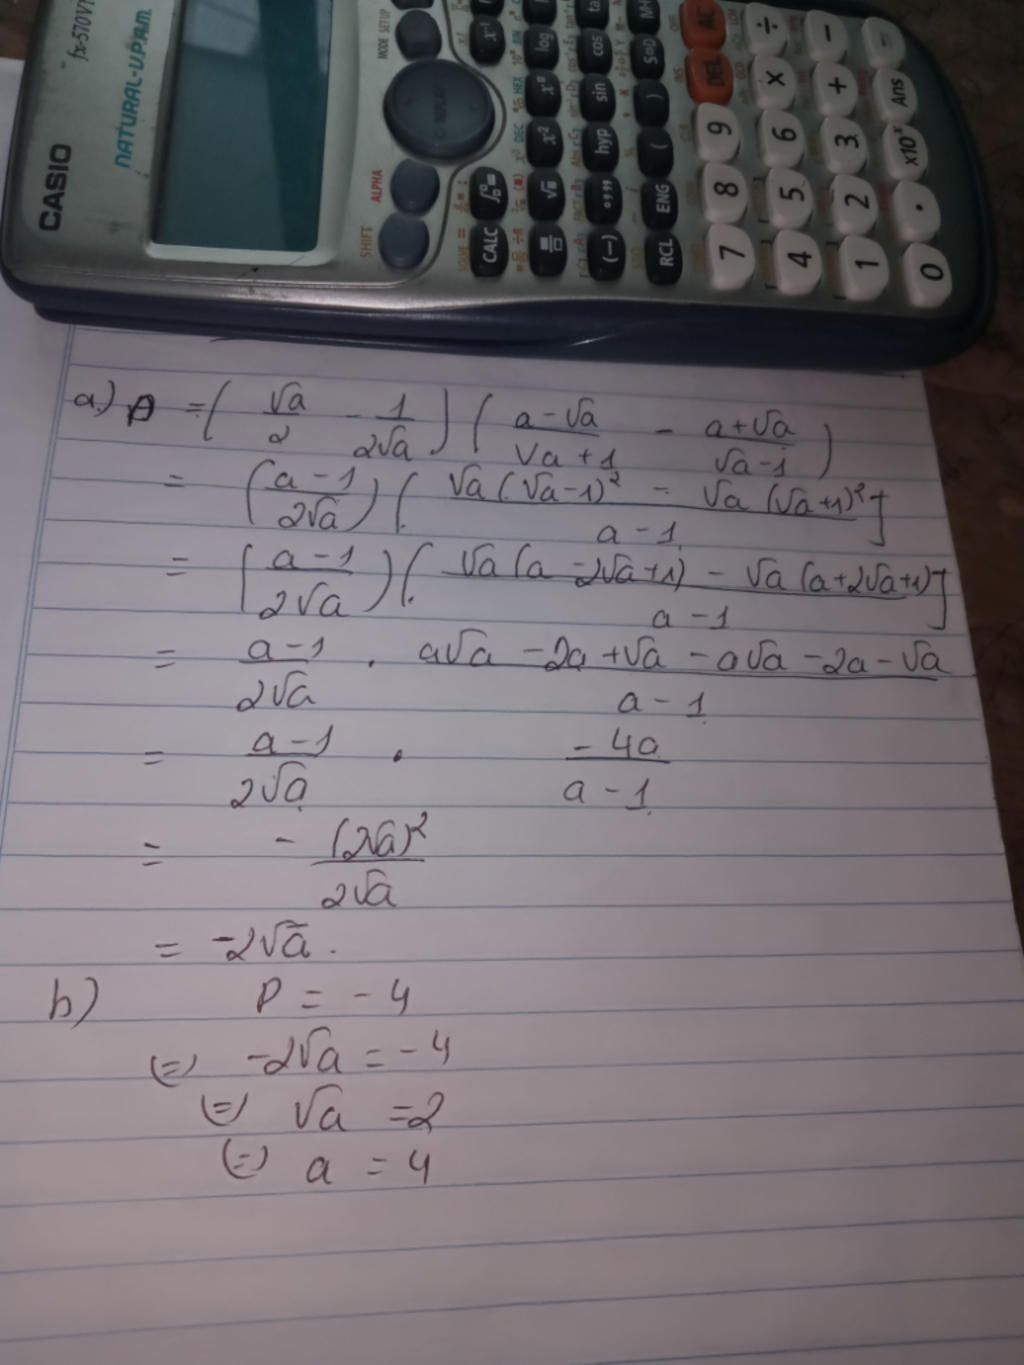 CASIO
fx-570V
NATURAL-V.P.A.M.
SHIFT ALPHA MODE SETUP
CALC ∫ x⁻¹
√ x² log
(−) hyp sin cos
RCL ENG ( ) S⇔D M+
7 8 9 DEL AC
4 5 6 × ÷
1 2 3 + −
0 . ×10ˣ Ans
a.) P = (√a/2 − 1/2√a) (a−√a/√a+1 − a+√a/√a−1)
= (a−1/2√a) (√a(√a−1)² − √a(√a+1)²/a−1]
= (a−1/2√a) (√a(a−2√a+1) − √a(a+2√a+1)/a−1]
= a−1/2√a . a√a −2a +√a −a√a −2a −√a/a−1
= a−1/2√a . −4a/a−1
= − (2√a)²/2√a
= −2√a.
b) P = −4
(=) −2√a = −4
(=) √a = 2
(=) a = 4